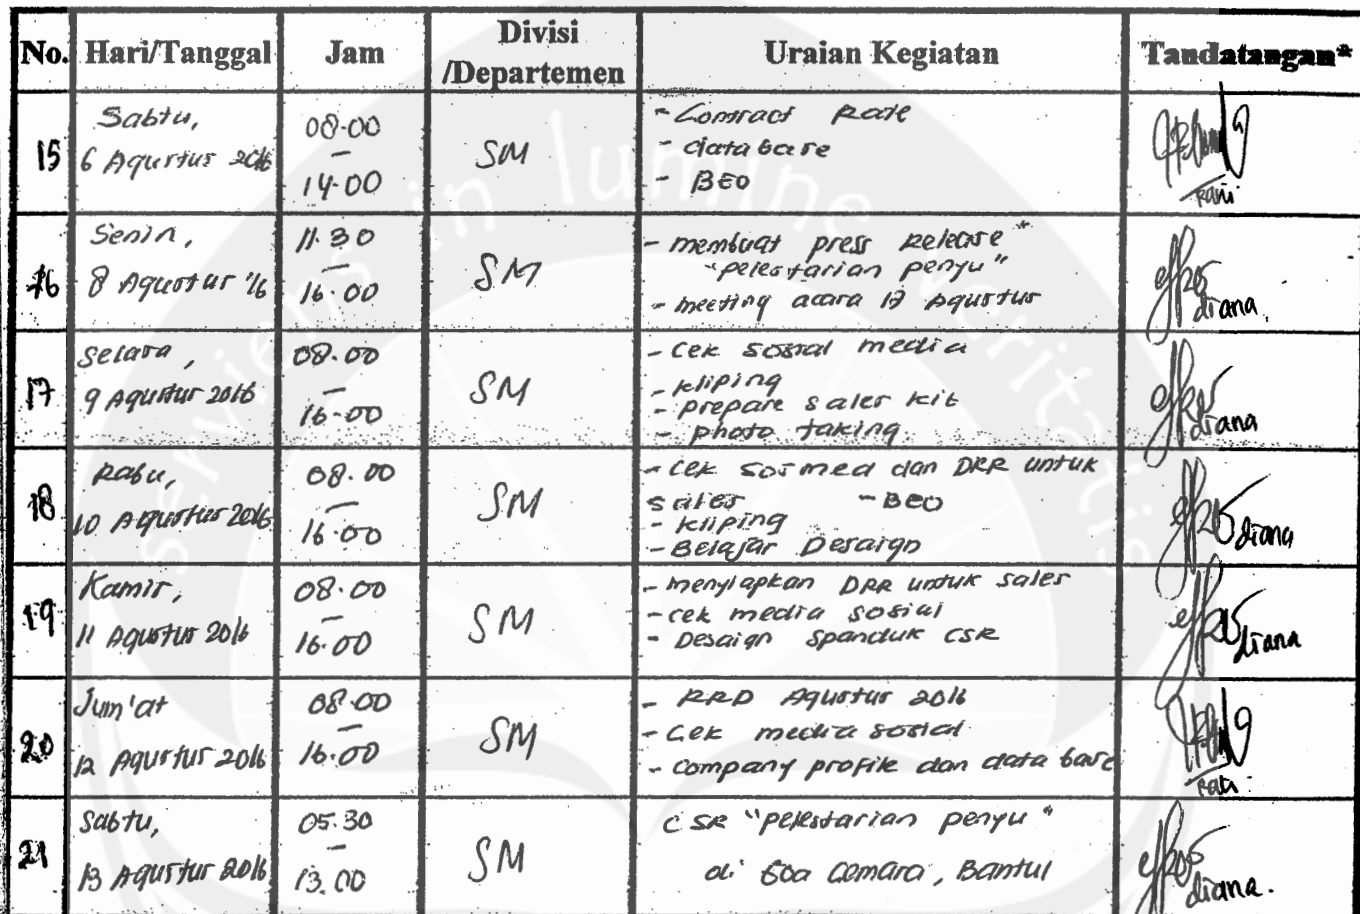 No. Hari/Tanggal Jam Divisi /Departemen Uraian Kegiatan Tandatangan*
15 Sabtu, 6 Agustus 2016 08.00 – 14.00 SM
- Contract Rate
- database
- BEO
Rani
16 Senin, 8 Agustus '16 11.30 – 16.00 SM
- membuat press release "
"pelestarian penyu"
- meeting acara 17 Agustus
diana.
17 Selasa, 9 Agustus 2016 08.00 – 16.00 SM
- cek sosial media
- kliping
- prepare sales kit
- photo taking.
diana
18 Rabu, 10 Agustus 2016 08.00 – 16.00 SM
- cek sosmed dan DRR untuk
sales - BEO
- kliping
- Belajar Desaign
diana
19 Kamis, 11 Agustus 2016 08.00 – 16.00 SM
- menyiapkan DRR untuk sales
- cek media sosial
- Desaign spanduk CSR
diana
20 Jum'at 12 Agustus 2016 08.00 – 16.00 SM
- RRD Agustus 2016
- Cek media sosial
- company profile dan data base
Rani
21 Sabtu, 13 Agustus 2016 05.30 – 13.00 SM
CSR "pelestarian penyu"
di Goa Cemara, Bantul
diana.
serviens in lumine veritatis